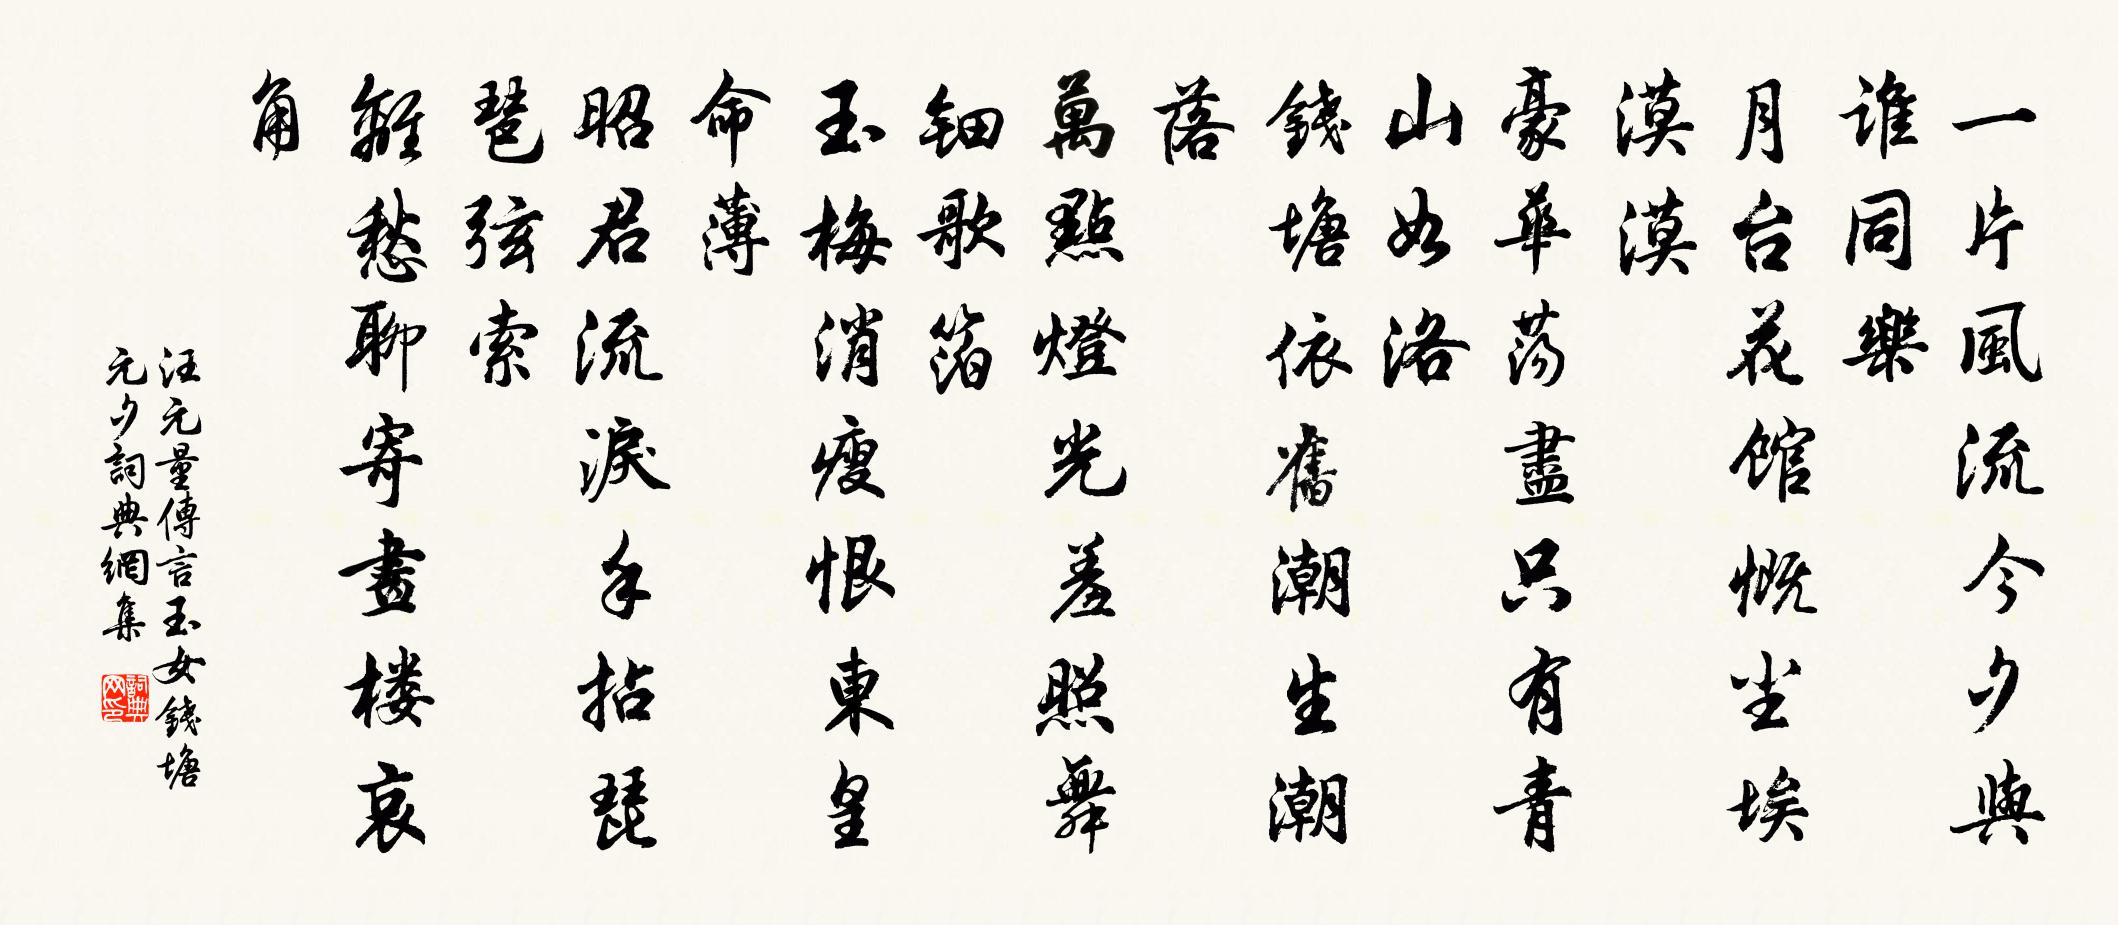 一片風流今夕與
谁同樂
月台花馆慨尘埃
漠漠
豪華荡盡只有青
山如洛
錢塘依舊潮生潮
落
萬點燈光羞照舞
钿歌箔
玉梅消瘦恨東皇
命薄
昭君流淚手拈琵
琶弦索
離愁聊寄畫楼哀
角
汪元量傳言玉女錢塘
元夕詞典網集
詞典网印